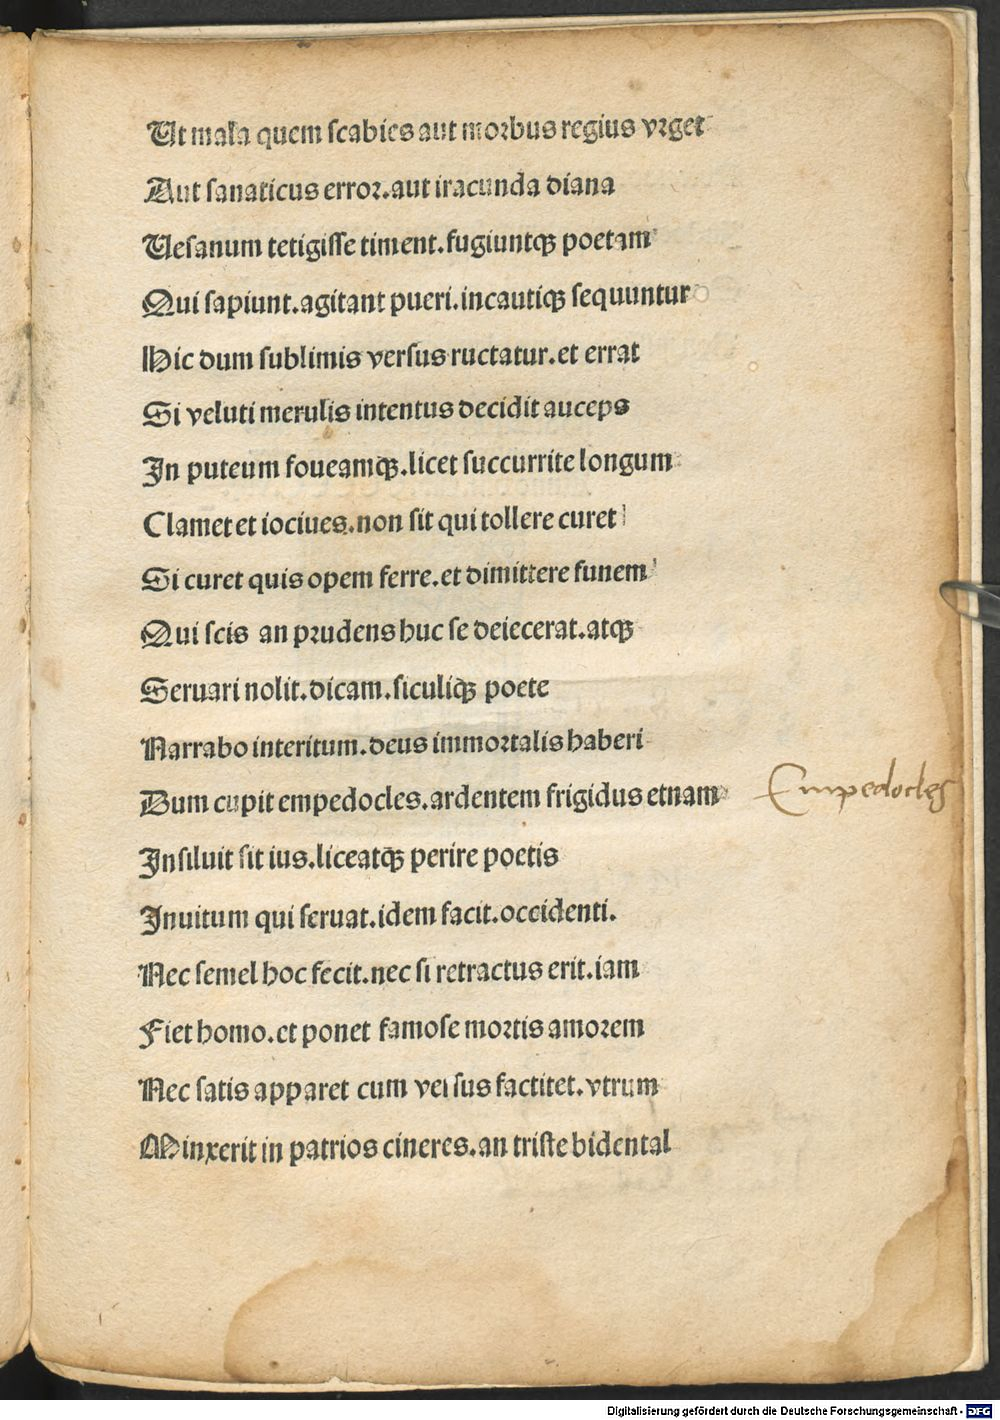 Ut mala quem scabies aut morbus regius vrget
Aut fanaticus error.aut iracunda diana
Uesanum tetigisse timent.fugiuntqꝫ poetam
Qui sapiunt.agitant pueri.incautiqꝫ sequuntur
Hic dum sublimis versus ructatur.et errat
Si veluti merulis intentus decidit auceps
In puteum foueamqꝫ.licet succurrite longum
Clamet et iociues.non sit qui tollere curet
Si curet quis opem ferre.et dimittere funem
Qui scis an prudens huc se deiecerat.atqꝫ
Seruari nolit.dicam.siculiqꝫ poete
Narrabo interitum.deus immortalis haberi
Dum cupit empedocles.ardentem frigidus etnam
Empedocles
Insiluit sit ius.liceatqꝫ perire poetis
Inuitum qui seruat.idem facit.occidenti.
Nec semel hoc fecit.nec si retractus erit.iam
Fiet homo.et ponet famose mortis amorem
Nec satis apparet cum versus factitet.vtrum
Minxerit in patrios cineres.an triste bidental
Digitalisierung gefördert durch die Deutsche Forschungsgemeinschaft - DFG